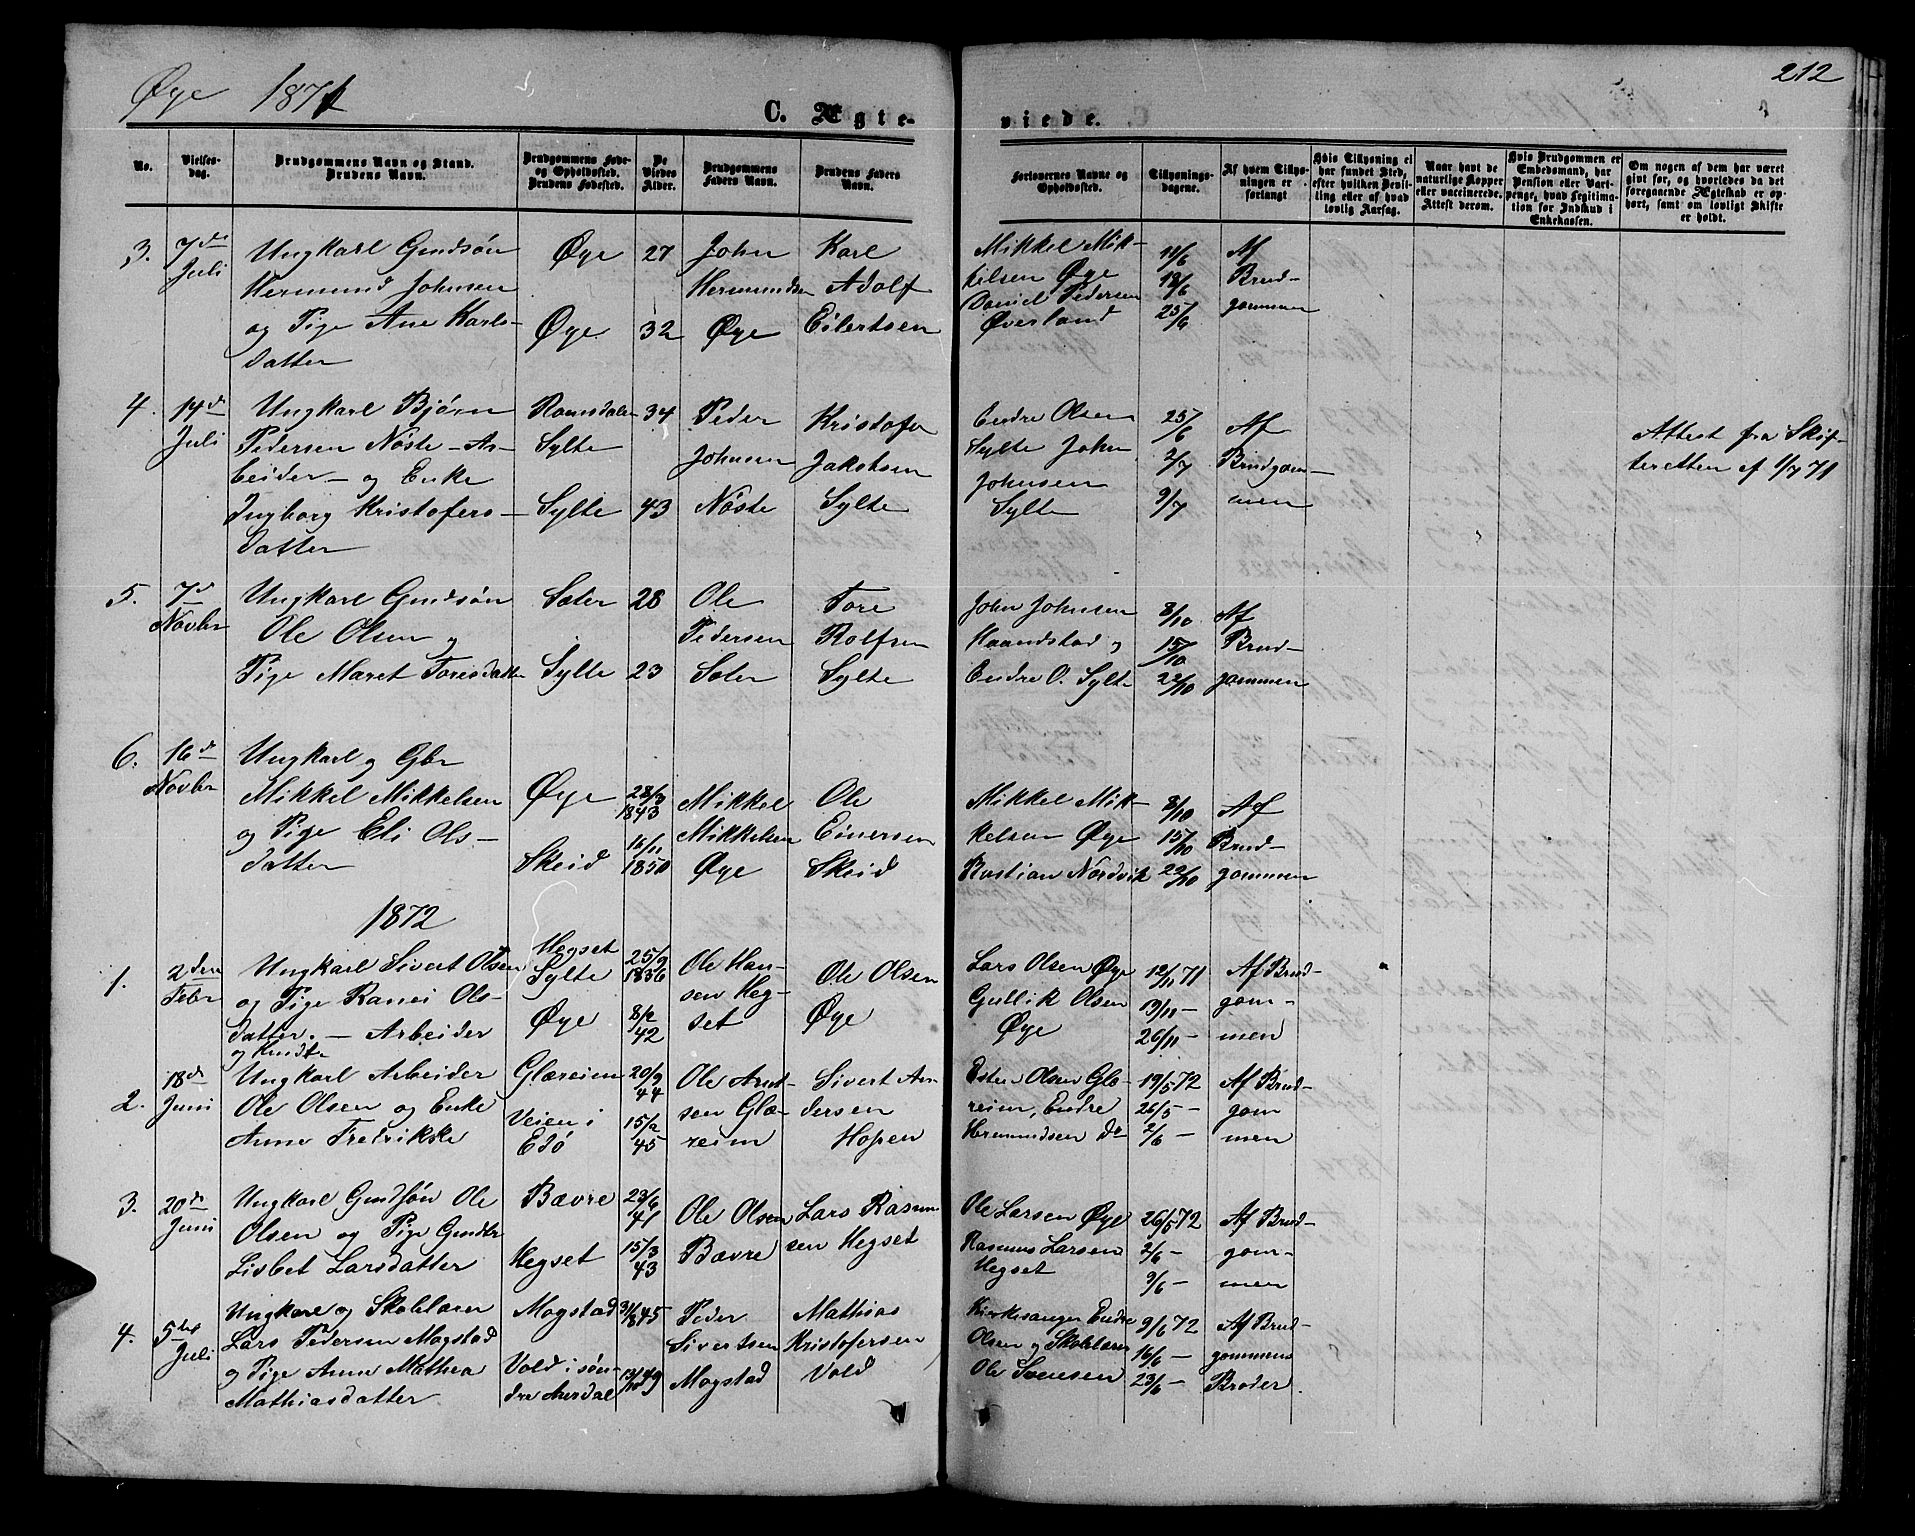 Øye 1871
212
C. Ægte-
viede.
No.
Vielses-
dag.
Brudgommens Navn og Stand.
Brudens Navn.
Brudgommens Føde-
og Opholdssted.
Brudens Fødested.
De
Viedes
Alder.
Brudgommens
Faders Navn.
Brudens Faders
Navn.
Forlovernes Navne og
Opholdssted.
Tillysnings-
dagene.
Af hvem Tillys-
ningen er
forlangt
Hvis Tillysning ei
har fundet Sted,
efter hvilken Bevil-
ling eller af hvad
lovlig Aarsag.
Naar havt de
naturlige Kopper
eller vaccinerede.
Attest derom.
Hvis Brudgommen er
Embedsmand, har
Pension eller Vart-
penge, hvad Legitima-
tion for Indskud i
Enkekassen.
Om nogen af dem har været
gift før, og hvorledes da det
foregaaende Ægteskab er op-
hørt, samt om lovligt Skifte
er holdt.
3.
7de
Juli
Ungkarl Gmdsøn
Hermund Johnsen
og Pige Ane Karls-
datter
Øye
Øye
27
32
John
Hermundsen
Øye
Karl
Adolf
Eilertsen
Mikkel Mik-
kelsen Øye
Daniel Pedersen
Øverland
11/6
18/6
25/6
Af
Brud-
gommen
4.
14de
Juli
Ungkarl Bjørn
Pedersen Nöste - Ar-
beider - og Enke
Ingborg Kristofers-
datter
Romsdalen
Sylte
Sylte
34
43
Peder
Johnsen
Nöste
Kristofer
Jakobsen
Sylte
Endre Olsen
Sylte John
Johnsen
Sylte
25/6
2/7
9/7
Af
Brudgom-
men
Attest fra Skif-
teretten af 1/7 71
5.
7d
Novbr
Ungkarl Gmdsøn
Ole Olsen og
Pige Maret Toresdatter
Sæter
Sylte
28
23
Ole
Pedersen
Sæter
Tore
Rolfsen
Sylte
John Johnsen
Haandstad og
Endre O. Sylte
8/10
15/10
22/10
Af
Brud-
gommen
6.
16de
Novbr
Ungkarl og Gbr
Mikkel Mikkelsen
og Pige Eli Ols-
datter
Øye
Skeid
28/3
1843
16/11
1850
Mikkel
Mikkelsen
Øye
Ole
Einersen
Skeid
Mikkel Mik-
kelsen Øye
Bastian Nordvik
8/10
15/10
22/10
Af
Brud-
gommen
1872
1.
2den
Febr
Ungkarl Sivert Olsen
og Pige Ranei Ols-
datter. - Arbeider
Hegset
Sylte
Øye
25/9
1836
8/2
42
Ole Han-
sen Heg-
set
Ole Olsen
Øye
Lars Olsen Øye
Gullik Olsen
Øye
12/11 71
19/11 -
26/11 -
Af Brud-
gom-
men
2.
18de
Juni
Ungkarl Arbeider
Ole Olsen og Enke
Anne Fredrikke
Glæreim
Veien i
Edö
20/9
44
15/2
45
Ole Arnt-
sen Glæ-
reim
Sivert An-
dersen
Hopen
Olsen Glæ-
reim, Endre
Hermundsen do
19/5 72
26/5 -
2/6 -
Af Brud-
gom
men
3.
20de
Juni
Ungkarl Gmdsøn Ole
Olsen og Pige Gmdtr
Lisbet Larsdatter
Bævre
Hegset
23/6
41
15/3
43
Ole Olsen
Bævre
Lars Rasmu-
sen Hegset
Ole Larsen Øye
Rasmus Larsen
Hegset
26/5 72
2/6 -
9/6 -
Af Brud-
gom-
men
4.
5te
Juli
Ungkarl og Skolelærer
Lars Pedersen Mogstad
og Pige Anne Mathea
Mathiasdatter
Mogstad
Vold i søn-
dre Aurdal
31/8 45
13/10 49
Peder
Sivertsen
Mogstad
Mathias
Kristofersen
Vold
Kirkesanger Endre
Olsen og Skolelærer
Ole Svensen
9/6 72
16/6 -
23/6 -
Af Brud-
gommens
Broder.